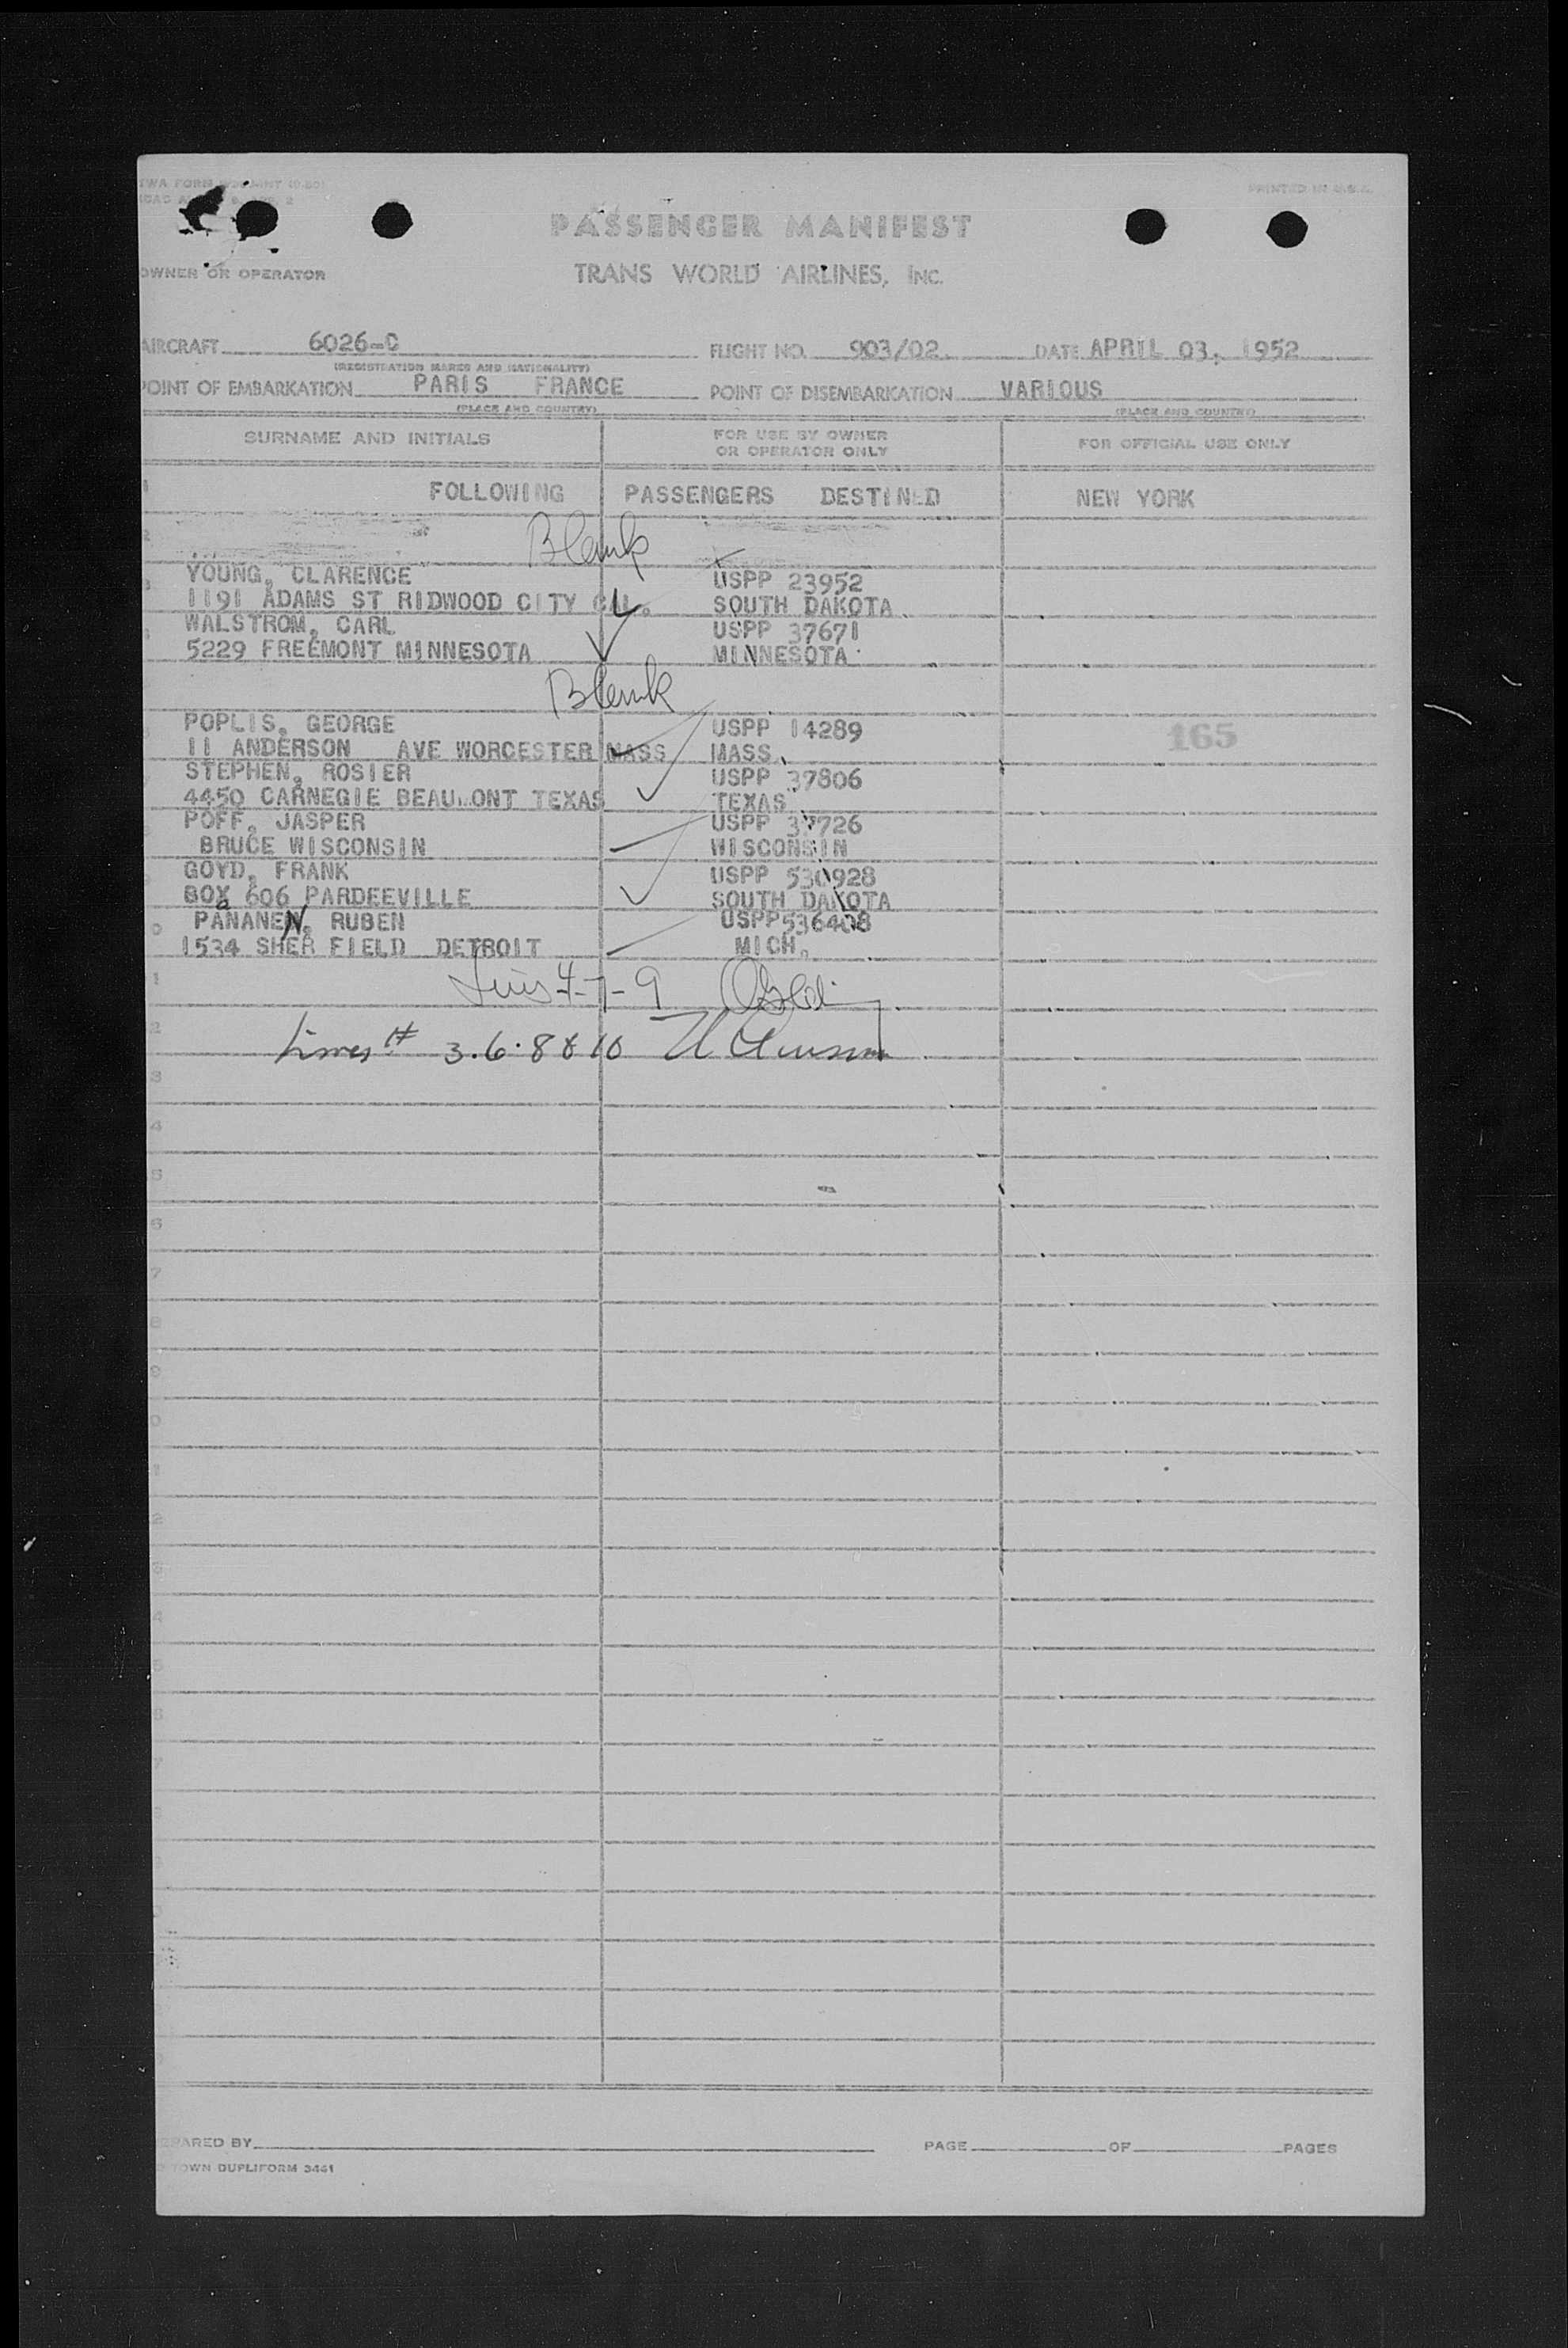 PRINTED IN U.S.A.
PASSENGER MANIFEST
OWNER OR OPERATOR
TRANS WORLD AIRLINES, INC.
AIRCRAFT 6026-C FLIGHT NO. 903/02 DATE APRIL 03, 1952
(REGISTRATION MARKS AND NATIONALITY)
POINT OF EMBARKATION PARIS FRANCE POINT OF DISEMBARKATION VARIOUS
(PLACE AND COUNTRY) (PLACE AND COUNTRY)
SURNAME AND INITIALS FOR USE BY OWNER OR OPERATOR ONLY FOR OFFICIAL USE ONLY
FOLLOWING PASSENGERS DESTINED NEW YORK
Blank
YOUNG, CLARENCE USPP 23952
1191 ADAMS ST RIDWOOD CITY CAL. SOUTH DAKOTA
WALSTROM, CARL USPP 37671
5229 FREEMONT MINNESOTA MINNESOTA
Blank
POPLIS, GEORGE USPP 14289
11 ANDERSON AVE WORCESTER MASS MASS. 165
STEPHEN, ROSIER USPP 37806
4450 CARNEGIE BEAUMONT TEXAS TEXAS
POFF, JASPER USPP 37726
BRUCE WISCONSIN WISCONSIN
GOYD, FRANK USPP 530928
BOX 606 PARDEEVILLE SOUTH DAKOTA
PANANEN, RUBEN USPP536408
1534 SHER FIELD DETROIT MICH.
4-7-9
Lines # 3.6.8 & 10
PARED BY PAGE OF PAGES
TOWN DUPLIFORM 3461